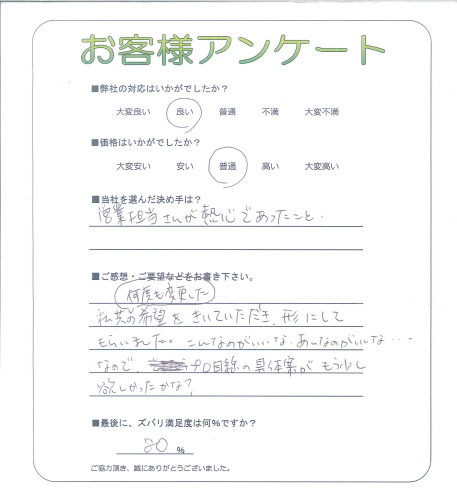 お客様アンケート
■弊社の対応はいかがでしたか？
大変良い 良い 普通 不満 大変不満
■価格はいかがでしたか？
大変安い 安い 普通 高い 大変高い
■当社を選んだ決め手は？
営業担当さんが熱心であったこと.
■ご感想・ご要望などをお書き下さい。
何度も変更した
私共の希望をきいていただき、形にして
もらいました。こんなのがいいな、あんなのがいいな・・・
なので、プロ目線の具体案がもう少し
欲しかったかな？
■最後に、ズバリ満足度は何％ですか？
80 ％
ご協力頂き、誠にありがとうございました。